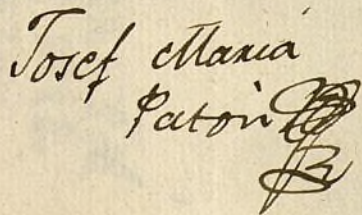 Josef Maria
Patòn